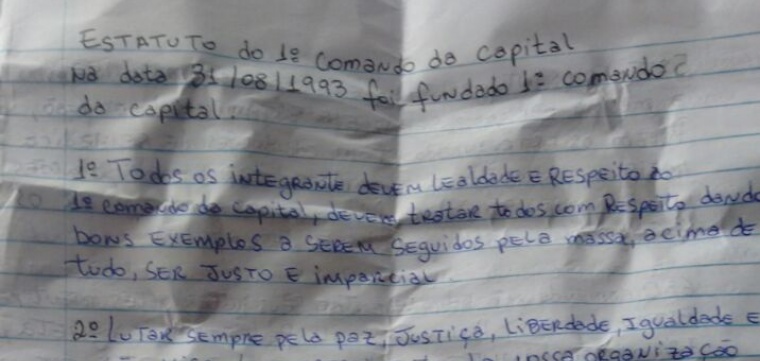 ESTATUTO do 1º Comando da Capital
Na data 31/08/1993 foi fundado 1º comando
da capital.
1º Todos os integrante devem lealdade e respeito ao
1º comando da capital, devem tratar todos com respeito dando
bons exemplos a serem seguidos pela massa, acima de
tudo, ser justo e imparcial
2º Lutar sempre pela paz, justiça, liberdade, igualdade e
nossa organização